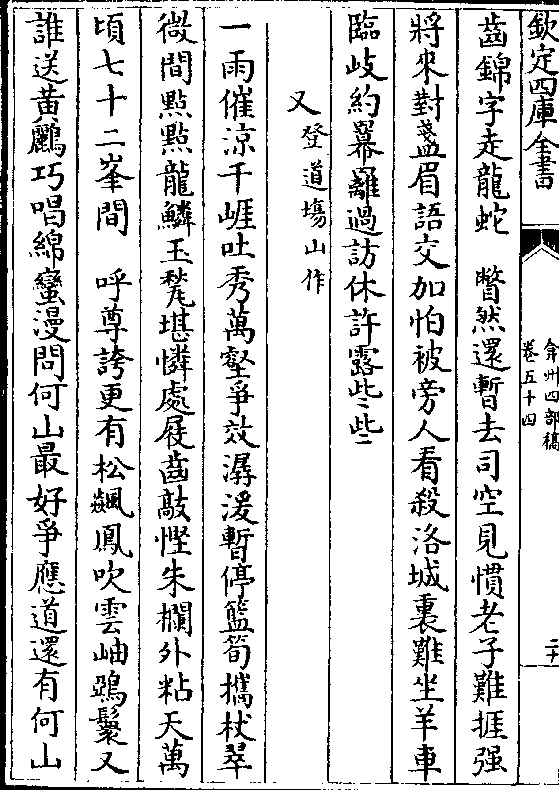 欽定四庫全書
弇州四部稿
卷五十四
二十
齒錦字走龍蛇　瞥然還暫去司空見慣老子難捱强
將來對盞眉語交加怕被旁人看殺洛城裏難坐羊車
臨岐約冪䍦過訪休許露些些
又登道塲山作
一雨催凉千崕吐秀萬壑爭效潺湲暫停籃筍攜杖翠
微間點點龍鱗玉甃堪憐處屐齒敲慳朱欄外粘天萬
頃七十二峯間　呼尊誇更有松飆鳳吹雲岫鵶鬟又
誰送黃鸝巧唱綿蠻漫問何山最好爭應道還有何山